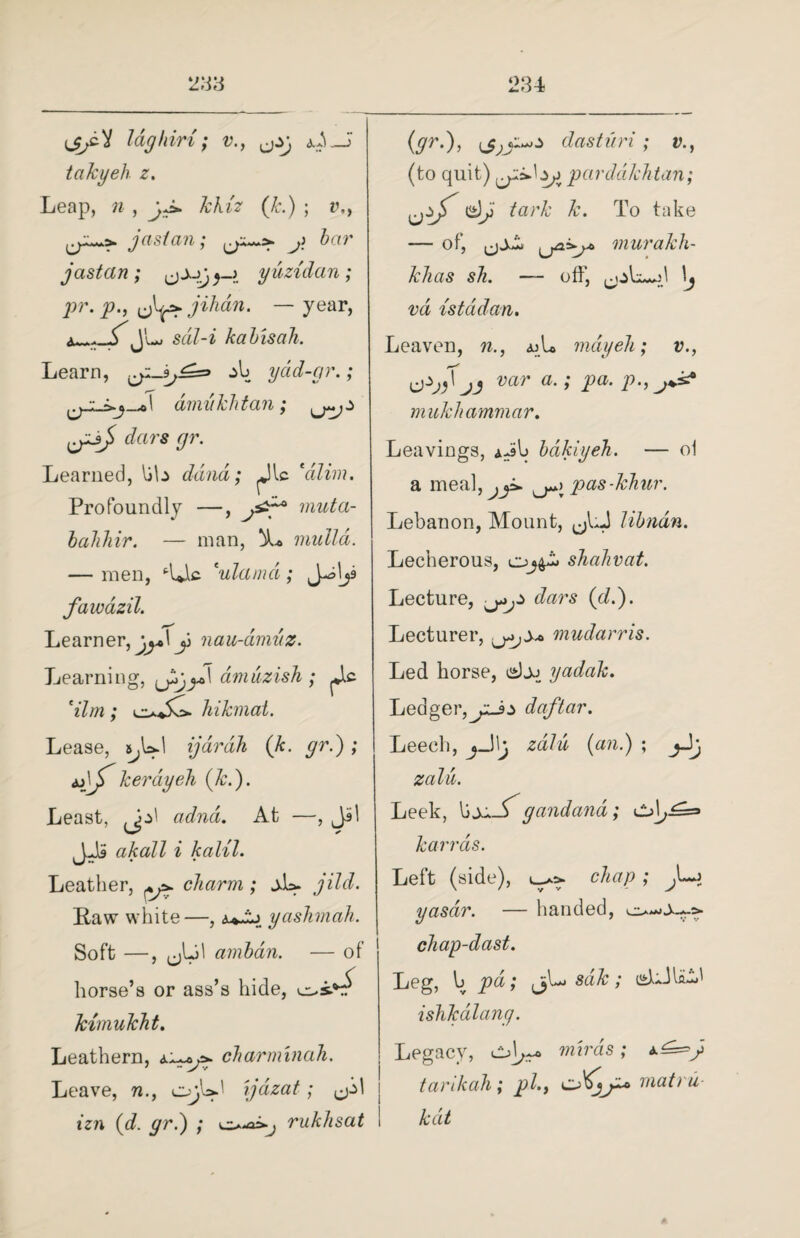 233
لاغری lághirí; v., تکیه زدن
takyeh z.
Leap, n , خیز khíz (k.) ; v.,
جستن jastan; بر جستن bar
jastan; یوزیدن yúzídan;
pr. p., جهان jihán. — year,
سال کبیسه sál-i kabísah.
Learn, یاد گرفتن yád-gr.;
آموختن ámúkhtan; درس
گرفتن dars gr.
Learned, دانا dáná; عالم 'álim.
Profoundly —, متبحر muta-
bahhir. — man, ملا mullá.
— men, علماء 'ulamá; فواضل
fawázil.
Learner, نو آموز nau-ámúz.
Learning, آموزش ámúzish; علم
'ilm; حکمت hikmat.
Lease, اجاره ijáráh (k. gr.);
کرایه keráyeh (k.).
Least, ادنی adná. At —, اقل
قلیل akall i kalíl.
Leather, چرم charm; جلد jild.
Raw white—, یشمه yashmah.
Soft —, انبان ambán. — of
horse's or ass's hide, کیمخت
kímukht.
Leathern, چرمینه charmínah.
Leave, n., اجازت ijázat; اذن
izn (d. gr.) ; رخصت rukhsat
234
(gr.), دستوری dastúrí; v.,
(to quit) پرداختن pardákhtan;
ترک کردن tark k. To take
— of, مرخص شدن murakh-
khas sh. — off, وا ایستادن
vá ístádan.
Leaven, n., مایه máyeh; v.,
ور آوردن var a.; pa. p., مخمر
mukhammar.
Leavings, باقیه bákiyeh. — of
a meal, پس خور pas-khur.
Lebanon, Mount, لبنان libnán.
Lecherous, شهوت shahvat.
Lecture, درس dars (d.).
Lecturer, مدرس mudarris.
Led horse, یدک yadak.
Ledger, دفتر daftar.
Leech, زالو zálú (an.) ; زلو
zalú.
Leek, گندنا gandaná; کراث
karrás.
Left (side), چپ chap; یسار
yasár. — handed, چپدست
chap-dast.
Leg, پا pá; ساق sák; اشقالنگ
ishkálang.
Legacy, میراث mírás; ترکه
tarikah; pl., متروکات matrú-
kát